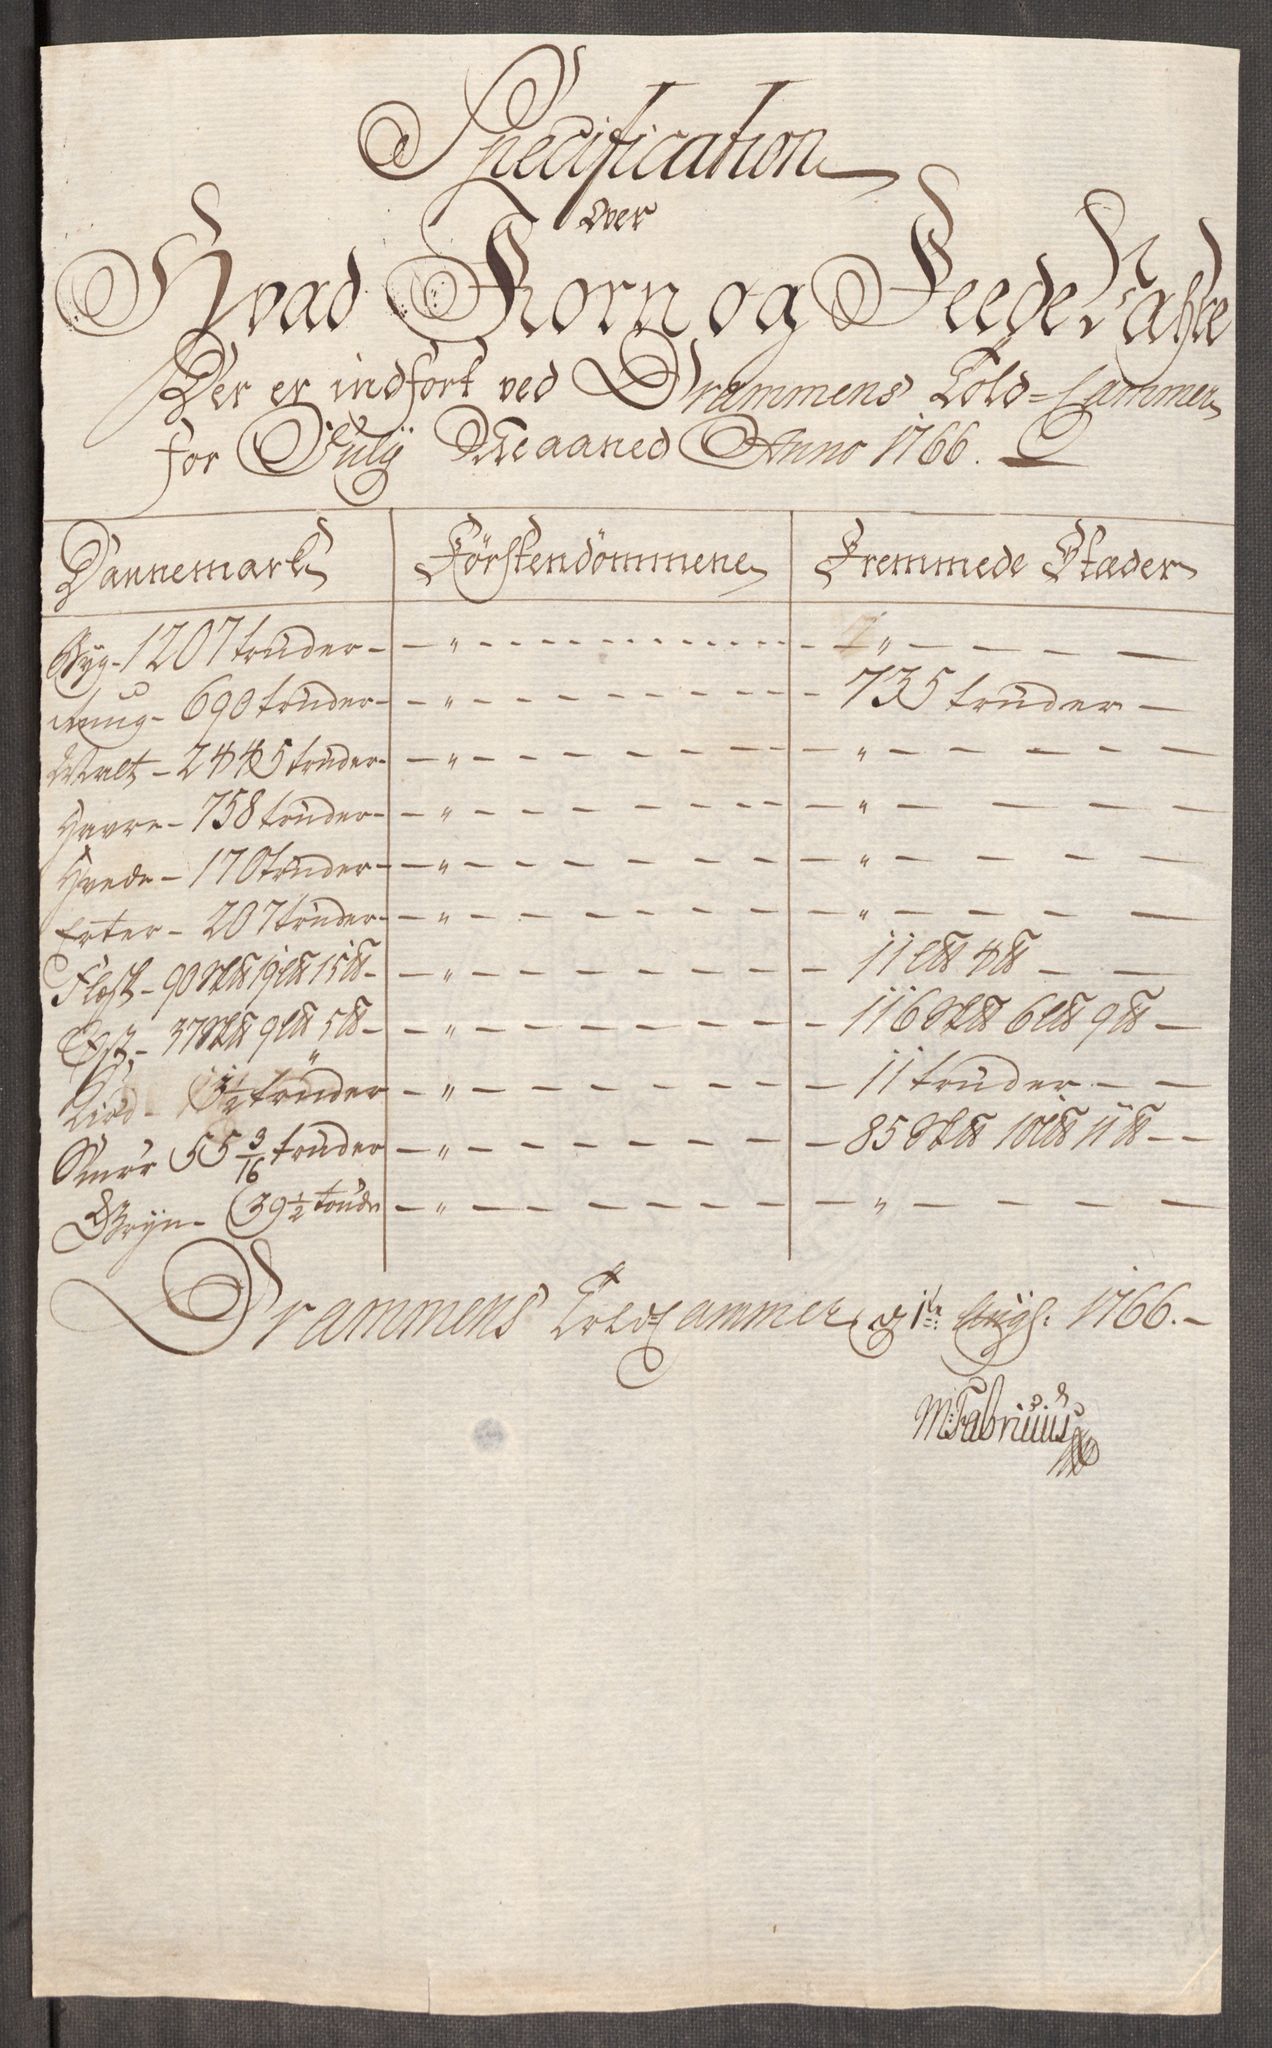 Specification
Over
Hvad Korn og Feede Vahre
Der er indført ved Drammens Told-Cammer
for July Maaned Anno 1766.
Dannemark Förstendömmene Fremmede Stæder
Byg - 1207 tünder - " - "
Rug - 690 tünder - " - 735 tünder
Malt - 2445 tünder - " - "
Havre - 758 tünder - " - "
Hvede - 170 tünder - " - "
Erter - 207 tünder - " - "
Flesk - 90 Sk℔ 19 L℔ 15 ℔ - " - 11 L℔ 4 ℔
Ost - 37 Sk℔ 9 L℔ 5 ℔ - " - 116 Sk℔ 6 L℔ 9 ℔
Kiød - 1/2 tønder - " - 11 tünder
Smör 55 3/16 tünder - " - 85 Sk℔ 10 L℔ 11 ℔
Gryn - 39 1/2 tønde - " - "
Drammens Told-Cammer d 1te Aug: 1766.
M: Fabritius